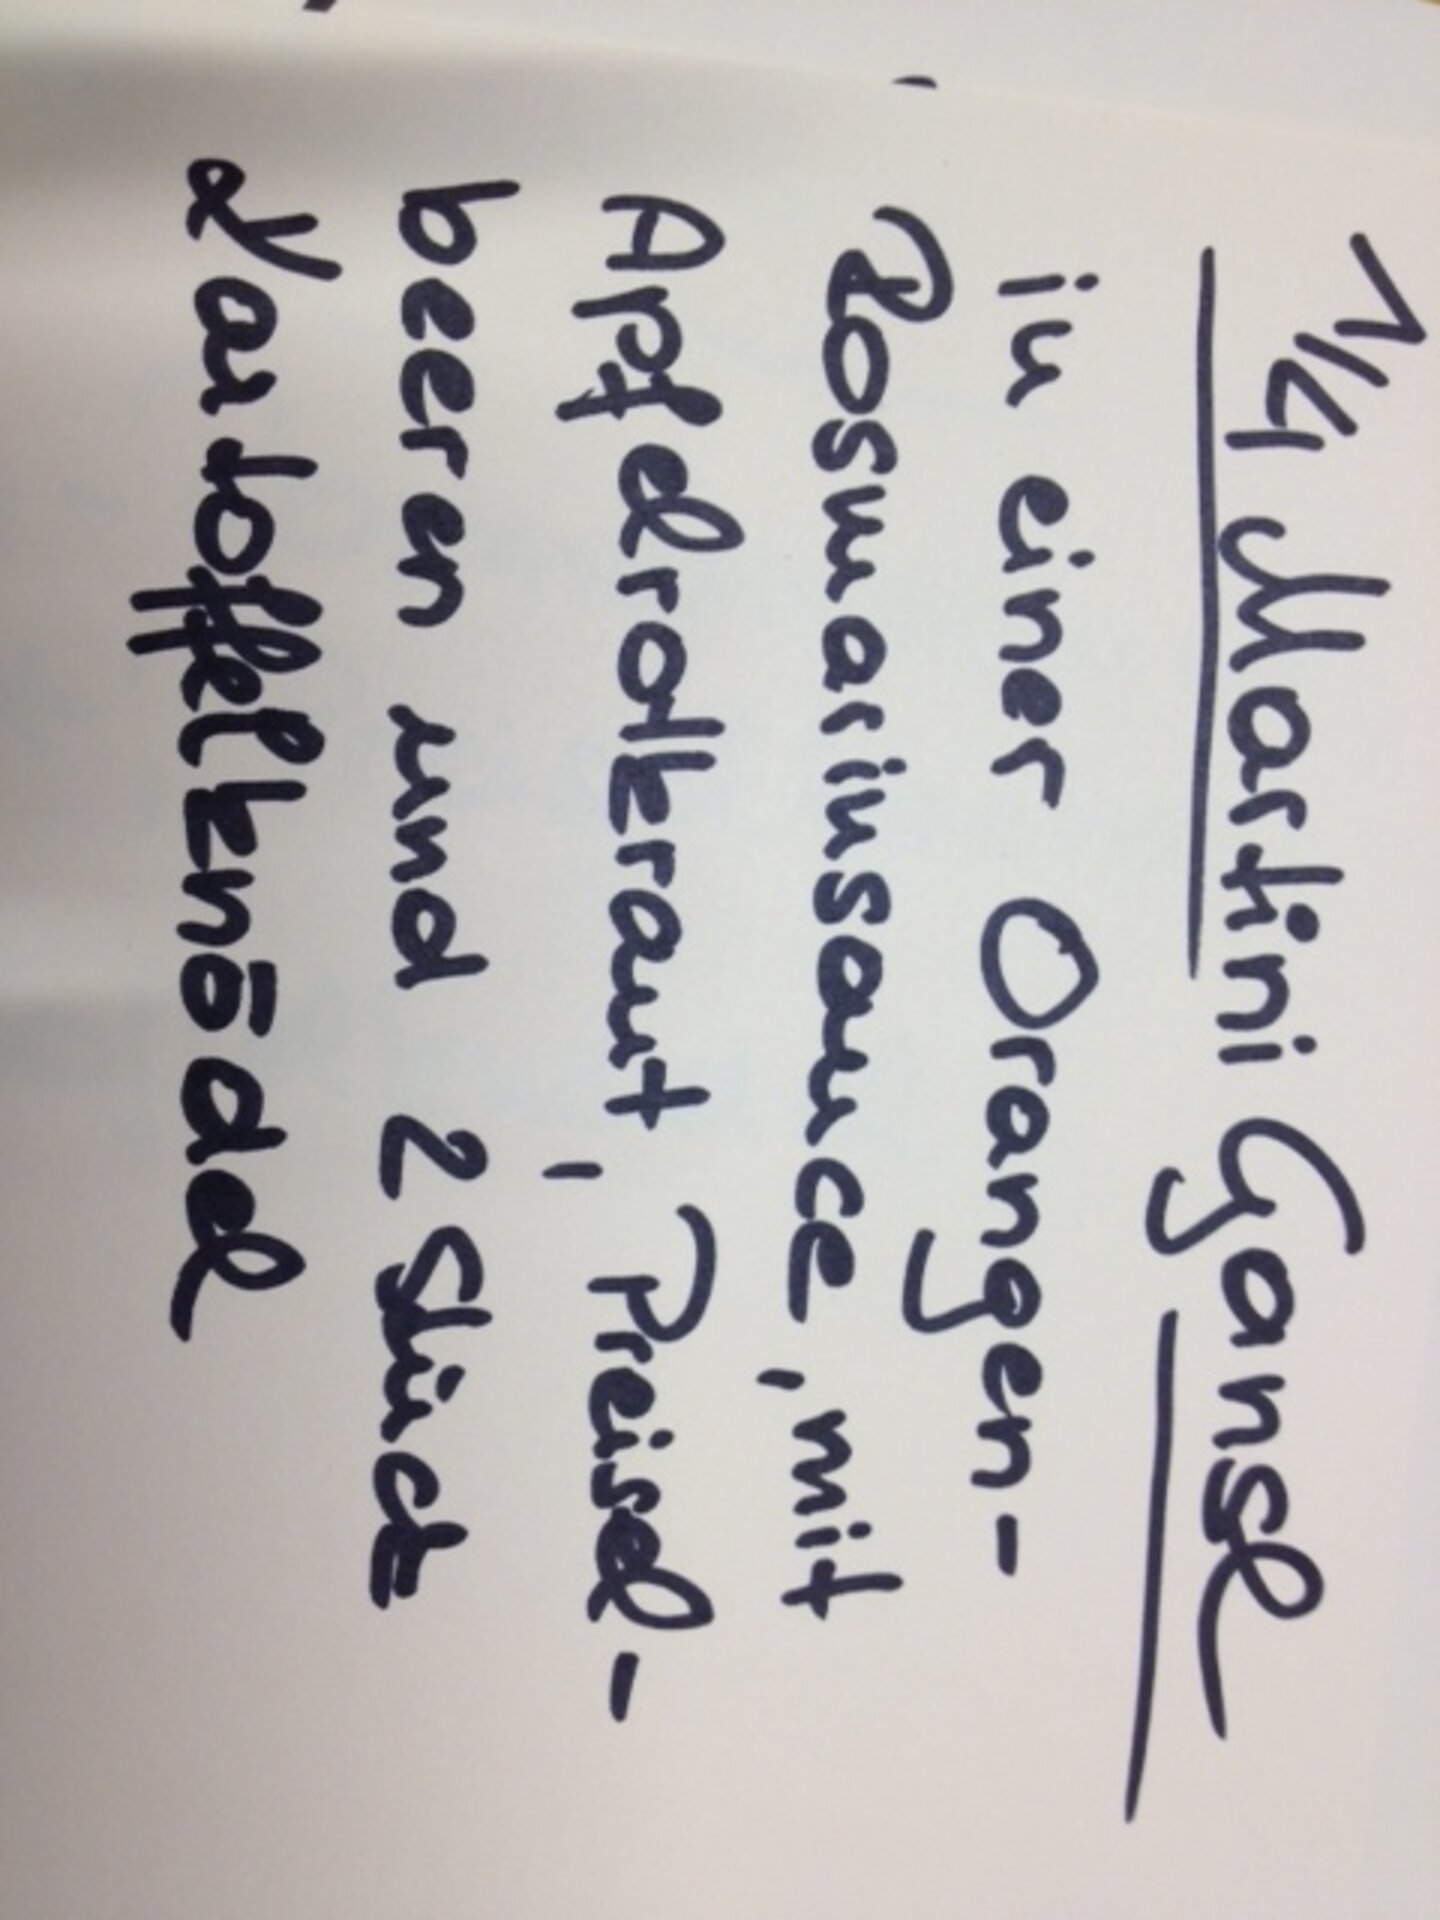 1/4 Martini Gansl
in einer Orangen-
Rosmarinsauce, mit
Apfelrotkraut, Preisel-
beeren und 2 Stück
Kartoffelknödel